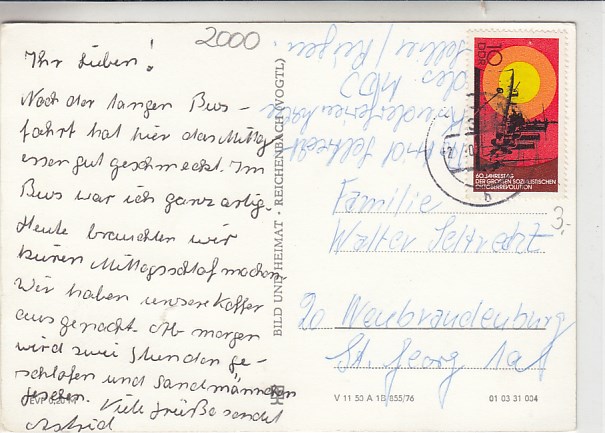 2000
Ihr Lieben!
Nach der langen Bus-
fahrt hat hier das Mittag
essen gut geschmeckt. Im
Bus war ich ganz artig.
Heute brauchten wir
keinen Mittagsschlaf machen.
Wir haben unsere Koffer
ausgepackt. Ab morgen
wird zwei Stunden ge-
schlafen und Sandmännchen
gesehen. Viele Grüße sendet
Astrid
EVP 0,20 M
BILD UND HEIMAT • REICHENBACH (VOGTL)
Kinderferienlager
des
Sellin / Rügen
10
DDR
60. JAHRESTAG
DER GROSSEN SOZIALISTISCHEN
OKTOBERREVOLUTION
b
3.-
Familie
Walter Seltrecht
20 Neubrandenburg
St. Georg 1a1
V 11 50 A 1B 855/76
01 03 31 034